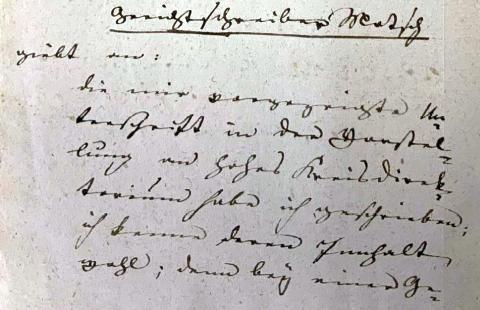 Gerichtschreiber Motsch
giebt an:
die mir vorgezeigte Un-
terschrift in der Vorstel-
lung an hohes Kreisdirek-
torium habe ich geschrieben;
ich kenne deren Innhalt
wohl; denn beÿ einer Ge-